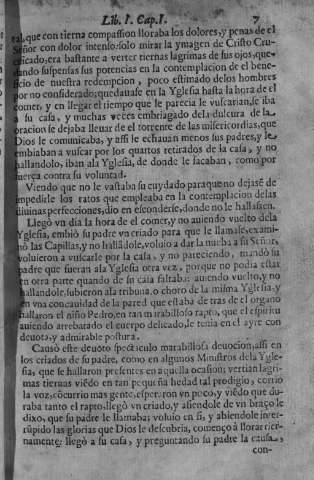 Lib. I. Cap. I. 7
eal, que con tierna compassion lloraba los dolores, y penas de el
Señor con dolor intenso: solo mirar la ymagen de Cristo Cru-
cificado, era bastante a verter tiernas lagrimas de sus ojos, que-
dando suspensas sus potencias en la contemplacion de el bene-
ficio de nuestra redempcion, poco estimado delos hombres
por no considerado; quedauase en la Yglesia hasta la hora de el
comer, y en llegar el tiempo que le parecia le vuscarian, se iba
a su casa, y muchas veces embriagado dela dulcura de la
oracion se dejaba lleuar de el torrente de las misericordias, que
Dios le comunicaba, y assi le echauan menos sus padres, y le
embiaban a vuscar por los quartos retirados de la casa, y no
hallandolo, iban ala Yglesia, de donde le sacaban, como por
fuerça contra su voluntad.
Viendo que no le vastaba su cuydado paraque no dejasē de
impedirle los ratos que empleaba en la contemplacion delas
diuinas perfecciones, dio en esconderse, donde no le hallassen.
Llegò vn dia la hora de el comer, y no auiendo vuelto dela
Yglesia, embiò su padre vn criado para que le llamase, exami-
nò las Capillas, y no hallādole, voluio a dar la nueba a su Señor,
voluieron a vuscarle por la casa, y no pareciendo, mandò su
padre que fueran ala Yglesia otra vez, porque no podia estar
en otra parte quando de su casa faltaba: auiendo vuelto, y no
hallandole, subieron ala tribuna, o choro de la misma Yglesia, y
en vna concauidad de la pared que estaba de tras de el organo
hallaron el niño Pedro, en tan marabilloso rapto, que el espiritu
auiendo arrebatado el cuerpo delicado, le tenia en el ayre con
deuota, y admirable postura.
Causò este deuoto spectaculo marabillosa deuocion, assi en
los criados de su padre, como en algunos Ministros dela Ygle-
sia, que se hallaron presentes en aquella ocasion; vertian lagri-
mas tiernas viēdo en tan pequeña hedad tal prodigio, corrio
la voz, cōcurrio mas gente, esperaron vn poco, y viēdo que du-
raba tanto el rapto, llegò vn criado, y asiendole de vn braço le
dixo, que su padre le llamaba; voluio en si, y abiendole inter-
rūpido las glorias que Dios le descubria, començò à llorar tier-
namente: llegò a su casa, y preguntando su padre la causa,
con-